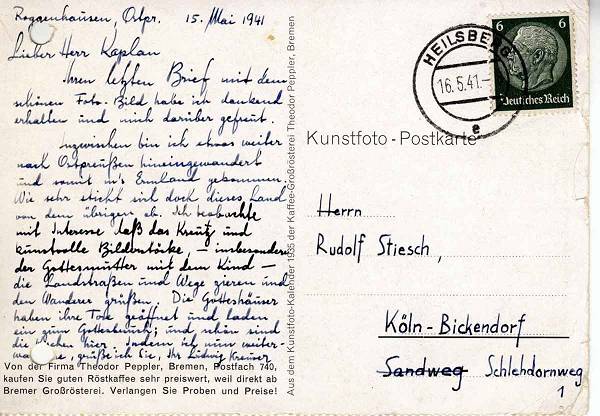 Roggenhausen, Ostpr. 15. Mai 1941
Lieber Herr Kaplan
Ihren letzten Brief mit dem
schönen Foto-Bild habe ich dankend
erhalten und mich darüber gefreut.
Inzwischen bin ich etwas weiter
nach Ostpreußen hineingewandert
und somit in's Ermland gekommen.
Wie sehr sticht sich doch dieses Land
von dem übrigen ab. Ich beobachte
mit Interesse daß das Kreutz und
kunstvolle Bilderstöcke – insbesondere
der Gottesmutter mit dem Kind –
die Landstraßen und Wege zieren und
den Wanderer grüßen. Die Gotteshäuser
haben ihre Tore geöffnet und laden
ein zum Gottesbesuch; und schön sind
die Kirchen hier. Indem ich nun weiter-
grüße ich Sie, Ihr Ludwig Kreuser
Von der Firma Theodor Peppler, Bremen, Postfach 740,
kaufen Sie guten Röstkaffee sehr preiswert, weil direkt ab
Bremer Großrösterei. Verlangen Sie Proben und Preise!
Aus dem Kunstfoto-Kalender 1935 der Kaffee-Großrösterei Theodor Peppler, Bremen
HEILSBERG
16.5.41.-
e
6 6
Deutsches Reich
Kunstfoto-Postkarte
Herrn
Rudolf Stiesch,
Köln-Bickendorf
Sandweg Schlehdornweg
1